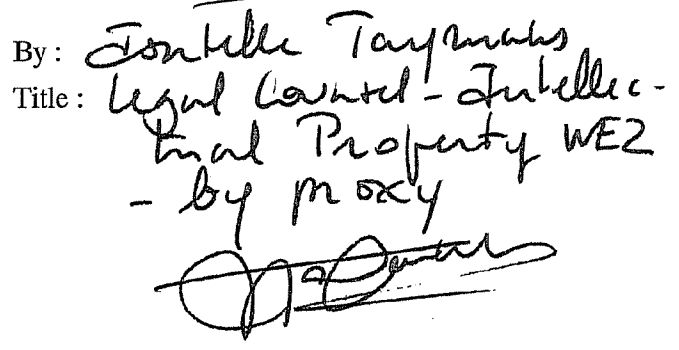 By : Joëlle Taymans
Title : Legal Counsel - Intellec-
tual Property WE2
- by proxy